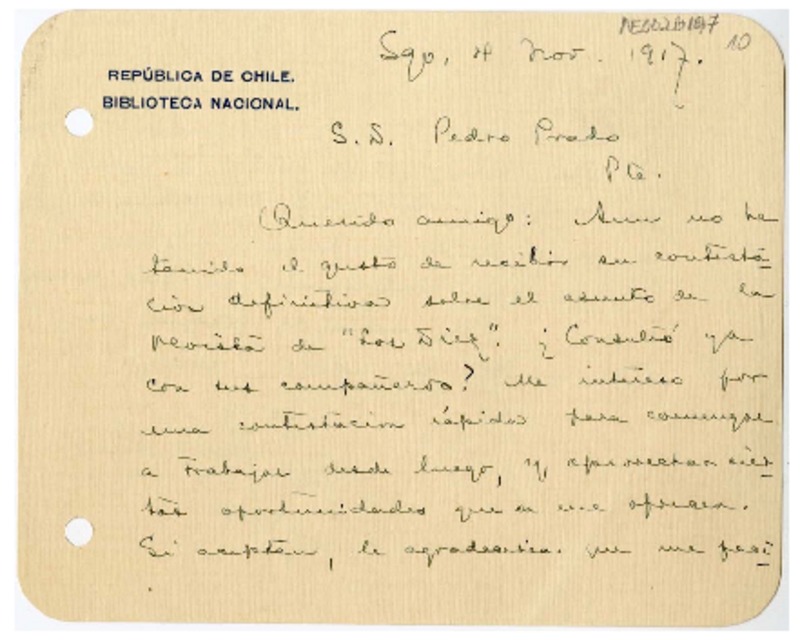 Sgo, 4 Nov. 1917.
10
REPÚBLICA DE CHILE.
BIBLIOTECA NACIONAL.
S. S. Pedro Prado
Pte.
Querido amigo: Aun no he
tenido el gusto de recibir su contesta-
ción definitiva sobre el asunto de la
revista de "Los Diez". ¿Consultó ya
con sus compañeros? Me intereso por
una contestacion rápida para comenzar
a trabajar desde luego, y, aprovechar cier-
tas oportunidades que se me ofrecen.
Si aceptan, le agradecería que me